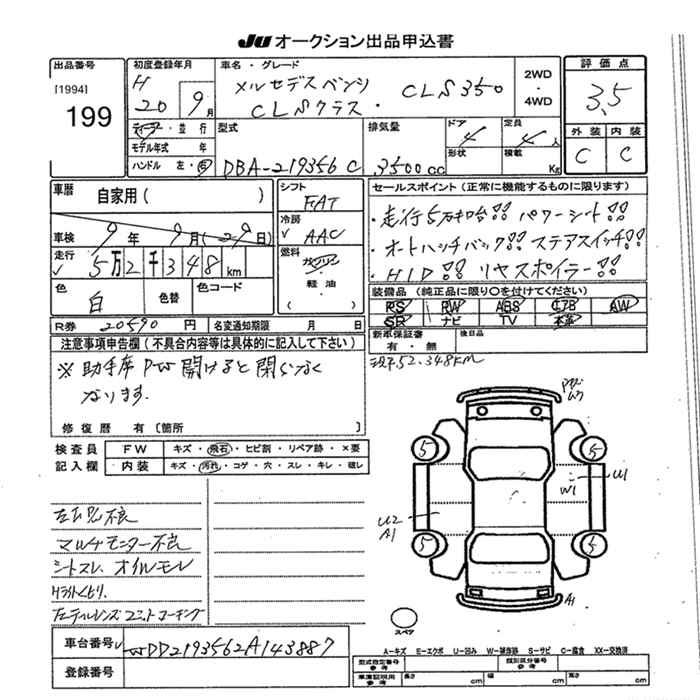 JU オークション出品申込書
出品番号
[1994]
199
初度登録年月
H
20 9月
ディーラー・並行
モデル年式 年
ハンドル 左・右
車名・グレード
メルセデスベンツ CLS350
CLSクラス・
2WD
・
4WD
評価点
3.5
外装 内装
C C
型式
DBA-219356C
排気量
3500cc
ドア 4
形状
定員 4人
積載 Kg
車歴
自家用( )
車検 9年 9月(29日)
走行
5万2千348km
色
白
色替
色コード
R券 20590円
名変通知期限 月 日
シフト
FAT
冷房
AAC
燃料
ガソリン
・
軽油
セールスポイント (正常に機能するものに限ります)
・走行5万キロ台!! パワーシート!!
・オートハッチバック!! ステアスイッチ!!
・HID!! リヤスポイラー!!
装備品 (純正品に限り〇を付けてください)
PS PW ABS エアB AW
SR ナビ TV 本革
新車保証書
有・無
後日品
現予52.348km
注意事項申告欄 (不具合内容等は具体的に記入して下さい)
※助手席PW開けると閉らなく
なります.
修復歴 有〔箇所
検査員
記入欄
FW キズ・飛石・ヒビ割・リペア跡・×要
内装 キズ・汚れ・コゲ・穴・スレ・キレ・破レ
マルチモニター不良
シートスレ. オイルモレ
左テールレンズ
車台番号
WDD2193562A143887
登録番号
W7
5 5
U1
W1
U2
A1
5 5
A1
スペア
A-キズ E-エクボ U-凹み W-補修跡 S-サビ C-腐食 XX-交換済
型式指定番号
参考
類別区分番号
参考
車庫証明用
参考
長さ cm 幅 cm 高さ cm